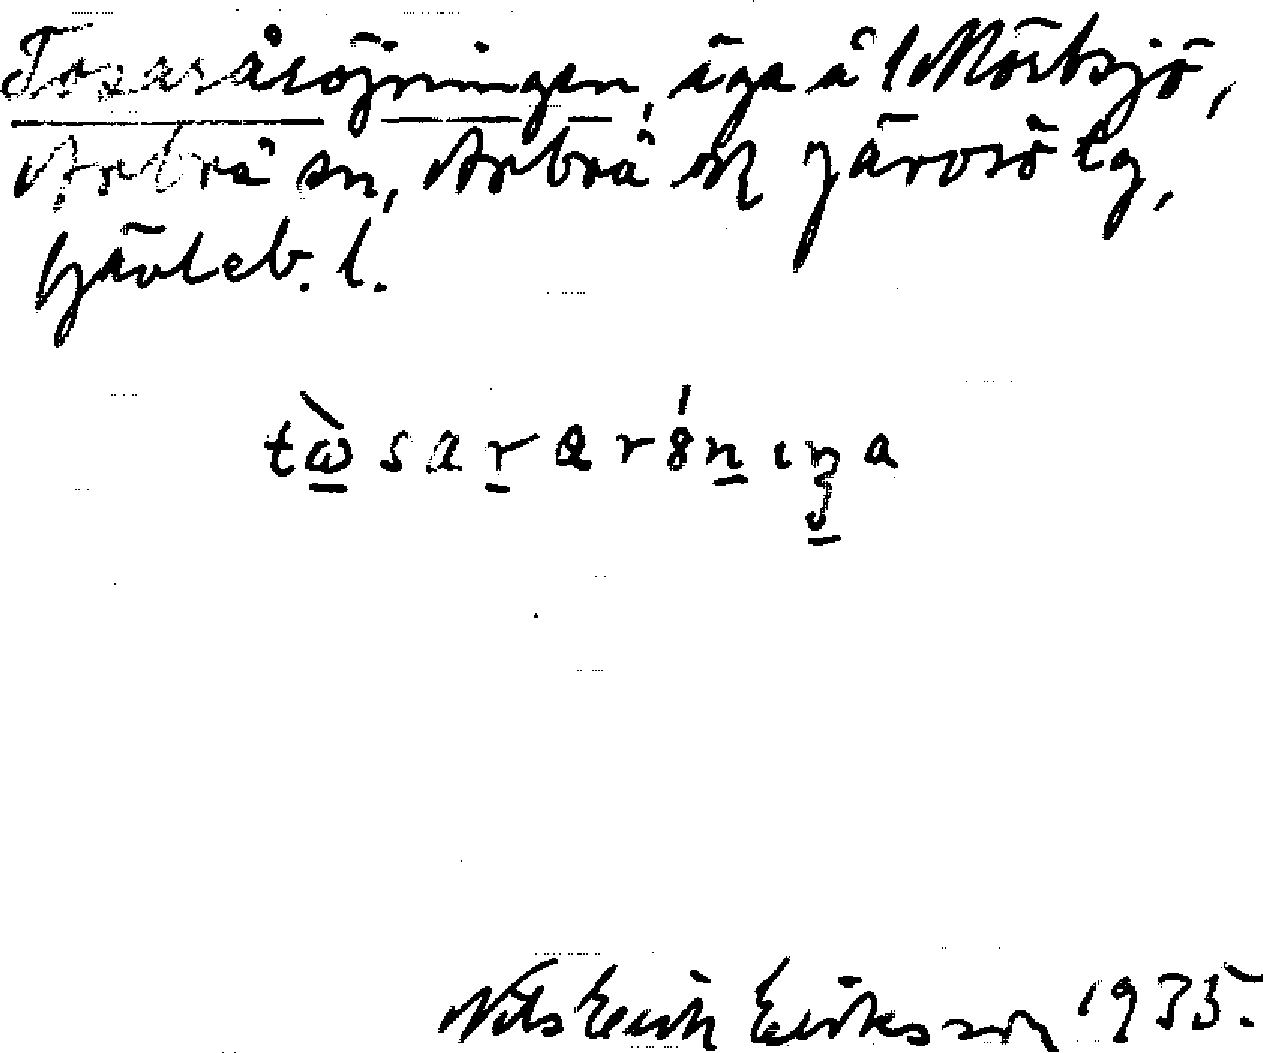 Tosaråröjningen, äga å 1 Mörtsjö,
Arbrå sn, Arbrå o. Järvsö tg,
Gävleb. l.
tὼsararónıŋa
Nils Erik Eriksson 1935.